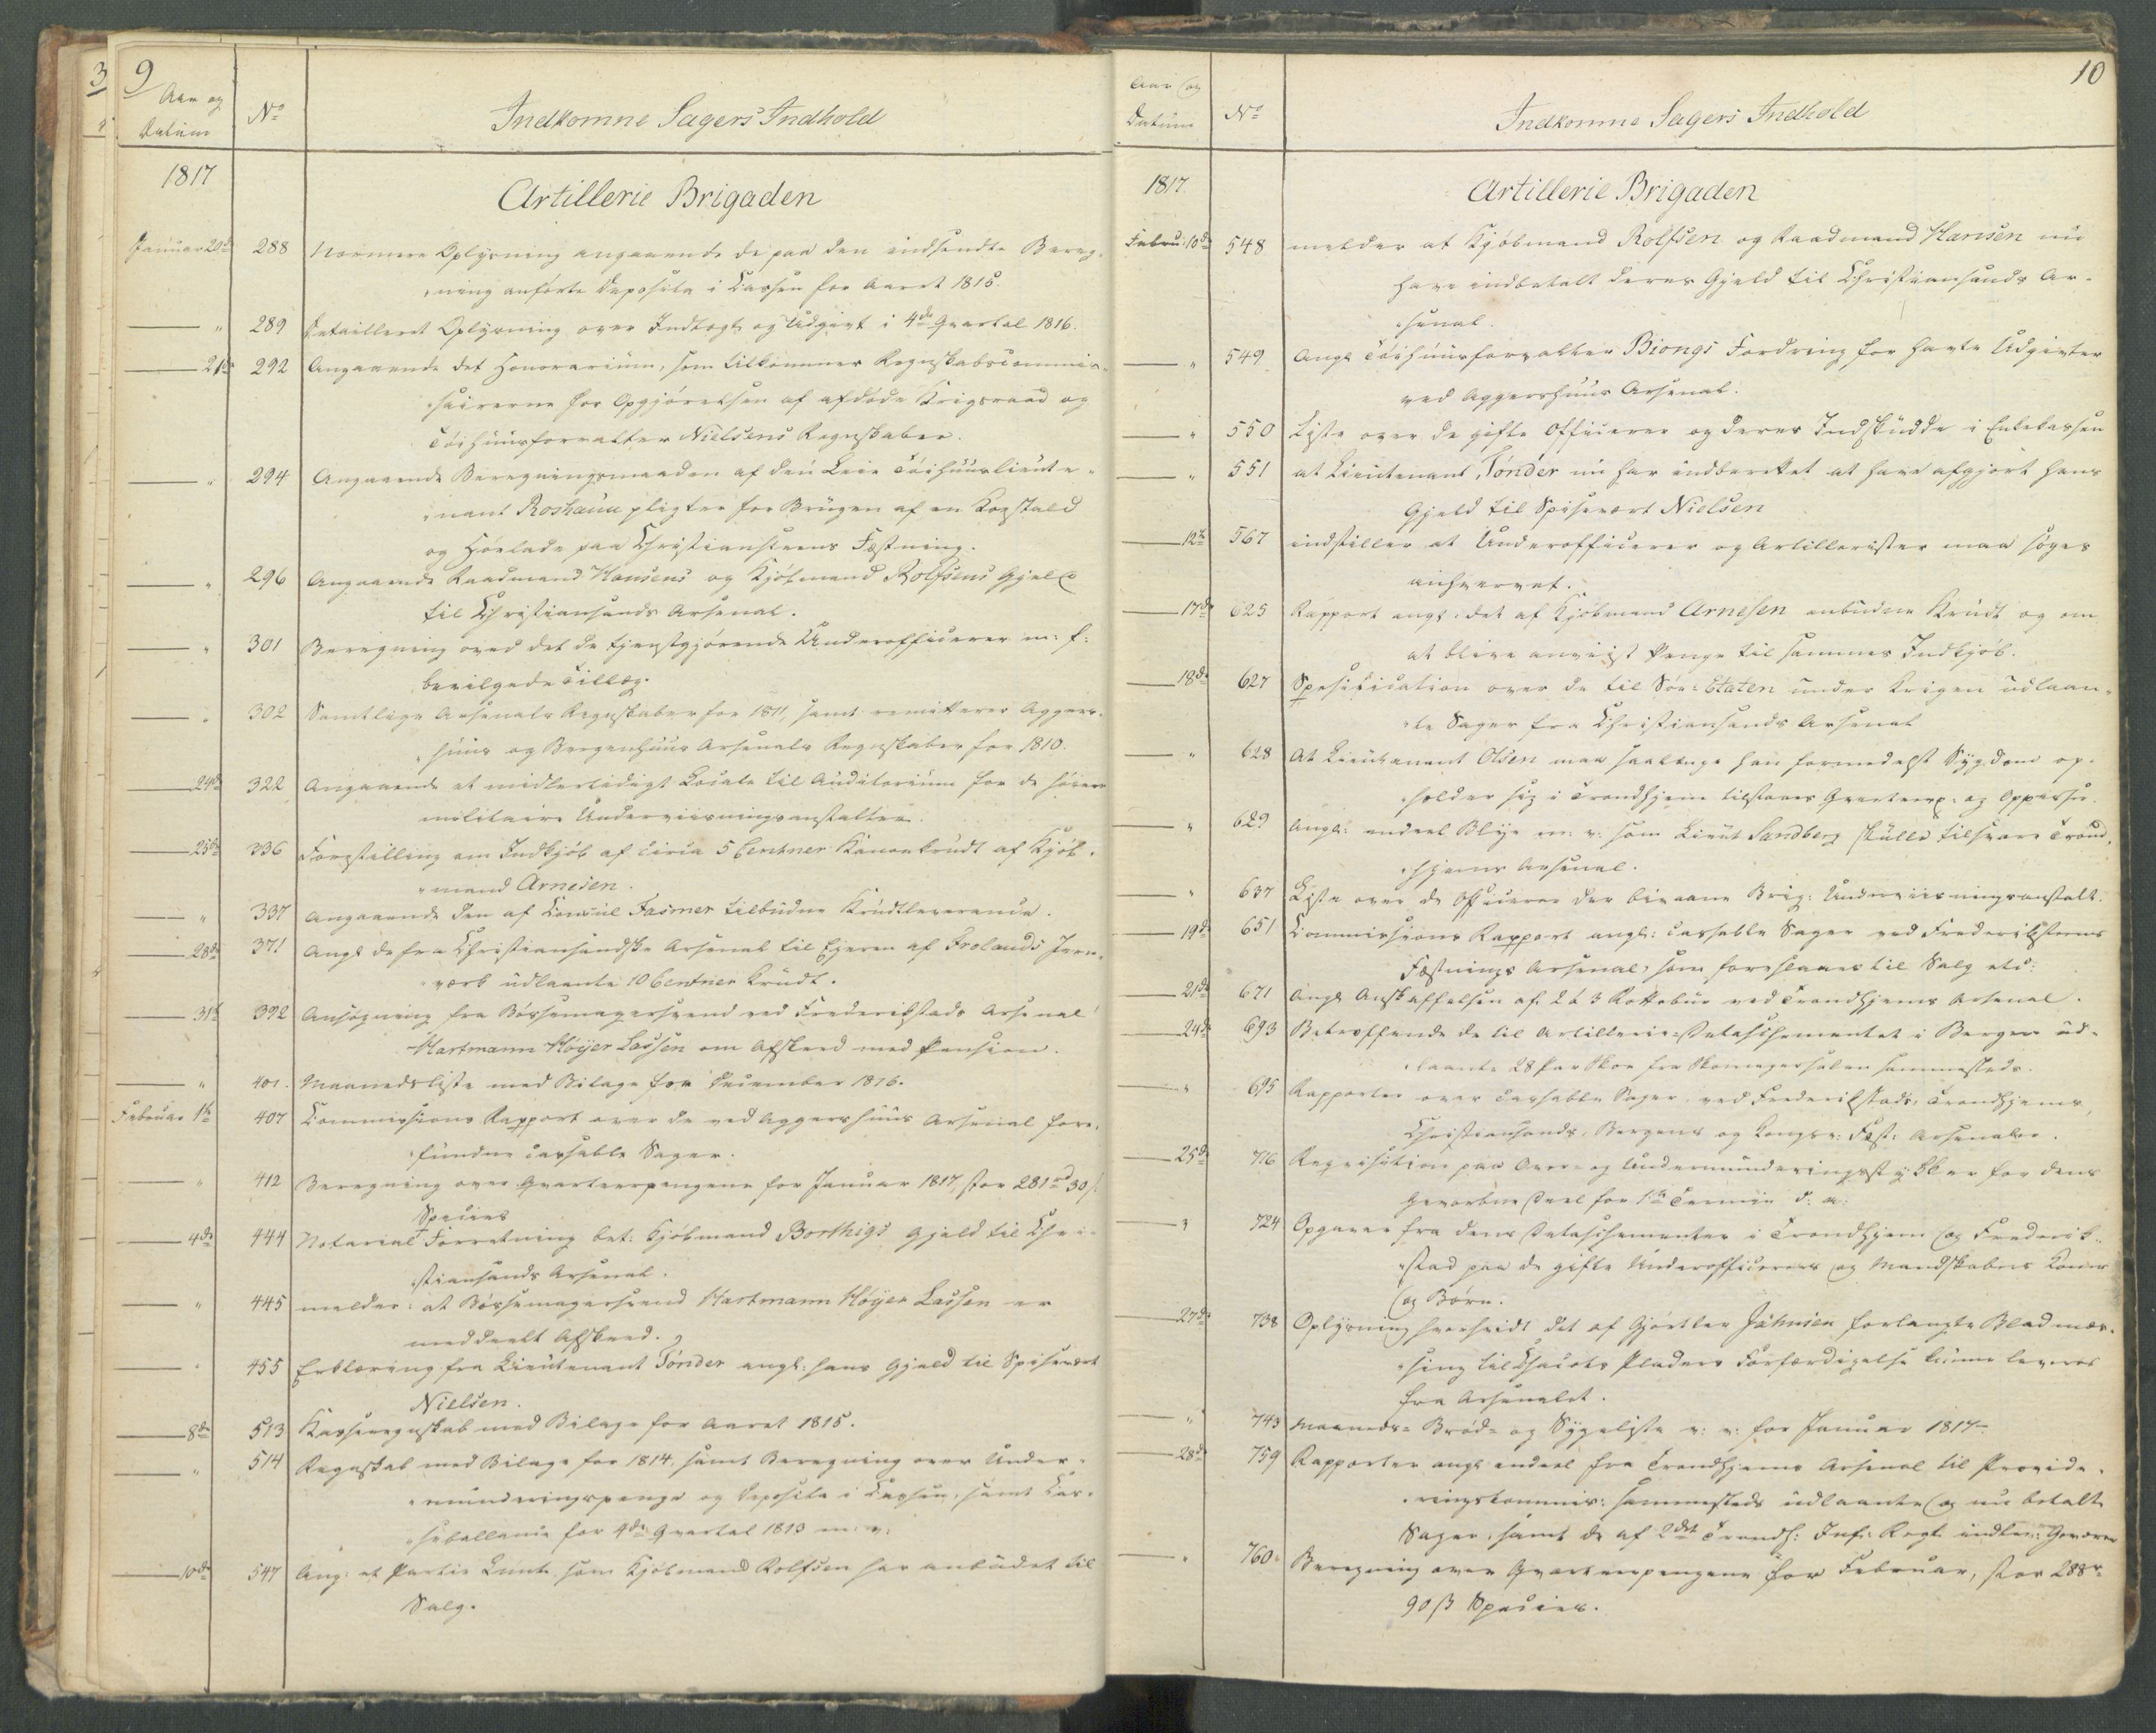 9
Aar og
Datum
No
Indkomne Sagers Indhold
1817
Artillerie Brigaden
Januar 20de 288 Nærmere Oplysning angaaende de paa den indsendte Bereg-
"ning anførte Deposita i Cassen for Aaret 1815.
" 289 Detailleret Oplysning over Indtægt og Udgivt i 4de Qvartal 1816.
21de 292 Angaaende det Honorarium, som tilkommer Regnskabscommis-
"sairerne for Opgjørelsen af afdøde Krigsraad og
Töihuusforvalter Nielsens Regnskaber.
" 294 Angaaende Beregningsmaaden af den Leie Töihuuslieute-
"nant Roshauw pligter for Brugen af en Koestald
og Höelade paa Christianssteens Fæstning.
" 296 Angaaende Raadmand Hansens og Kjøbmand Rolfsens Gjeld
til Christiansands Arsenal.
" 301 Beregning over det de tjenstgjørende Underofficerer m: f:
bevilgede Tillæg.
" 302 Samtlige Arsenals Regnskaber for 1811, samt remitterer Aggers-
"huus og Bergenhuus Arsenals Regnskaber for 1810.
24de 322 Angaaende et midlertidigt Locale til Auditorium for de höiere
militaire Underviisningsanstalter.
25de 336 Forestilling om Indkjöb af circa 5 Centner Kanonkrudt af Kjöb-
"mand Arnesen.
" 337 Angaaende den af Consul Fasmer tilbudne Krudtleverance.
28de 371 Angl de fra Christiansandske Arsenal til Eieren af Frolands Jern-
værk udlaante 10 Centner Krudt.
31te 392 Ansøgning fra Bössemagersvend ved Frederikstads Arsenal
Hartmann Höyer Lassen om Afskeed med Pension.
" 401. Maanedsliste med Bilage for December 1816.
Februar 1te 407 Commissions Rapport over de ved Aggershuus Arsenal fore-
fundne cassable Sager.
" 412 Beregning over Qvarteerpengene for Januar 1817, stor 281rd 30 s
Species
4de 444 Notarial Forretning bet: Kjöbmand Borthigs Gjeld til Chri-
stiansands Arsenal.
" 445 melder: at Bössemagersvend Hartmann Höyer Lassen er
meddeelt Afskeed.
" 455 Erklæring fra Lieutenant Tönder angl: hans Gjeld til Spisevært
Nielsen.
8de 513 Kasseregnskab med Bilage for Aaret 1815.
" 514 Regnskab med Bilage for 1814, samt Beregning over Under-
"munderingspenge og Deposita i Cassen, samt Cas-
"seballance for 4de Qvartal 1813 m: v:
10de 547 Ang: et Partie Lunte, som Kjöbmand Rolfsen har anbudet til
Salg.
10
Aar og
Datum
No
Indkomne Sagers Indhold
1817.
Artillerie Brigaden
Febru: 10de 548 melder at Kjöbmand Rolfsen og Raadmand Hansen nu
have indbetalt deres Gjeld til Christiansands Ar-
"senal.
" 549 Angl Töihuusforvalter Biongs Fordring for havte Udgivter
ved Aggershuus Arsenal.
" 550 Liste over de gifte Officerer og deres Indskudde i Enkekassen
" 551 at Lieutenant Tönder nu har indberettet at have afgjort hans
Gjeld til Spisevært Nielsen
12te 567 indstiller at Underofficerer og Artillerister maa söges
anhvervet.
17de 625 Rapport angl: det af Kjöbmand Arnesen anbudne Krudt og om
at blive anviist Penge til sammes Indkjöb.
18de 627 Spesification over de til Söe-Etaten under Krigen udlaan-
"te Sager fra Christiansands Arsenal
" 628 At Lieutenant Olsen maa saalænge han formedelst Sygdom op-
"holder sig i Trondhjem tilstaaes Qvarteerp: og Oppasser.
" 629 Angl: endeel Blye m: v: som Lieut Sandberg skulle tilsvare Trond-
"hjems Arsenal.
" 637 Liste over de Officerer der bivaane Brig: Underviisningsanstalt.
19de 651 Commissions Rapport angl: cassable Sager ved Frederiksteens
Fæstnings Arsenal, som foreslaaes til Salg etc:
21de 671 Angl Anskaffelsen af 2 à 3 Kakkelovne ved Trondhjems Arsenal.
24de 693 Betreffende de til Artillerie-Detaschementet i Bergen ud-
"laante 28 Par Skoe fra Skomagersalen sammesteds.
" 695 Rapporter over cassable Sager ved Frederikstads, Trondhjems,
Christiansands, Bergens og Kongsv: Fæst: Arsenaler.
25de 716 Requisition paa Over- og Undermunderingsstykker for dens
Gevorbne Deel for 1te Termin d: A:
" 724 Opgaver fra dens Detaschementer i Trondhjem og Frederik-
"stad paa de gifte Underofficerers og Mandskabers Koner
og Börn.
27de 738 Oplysning hvorvidt det af Gjörtler Jähnsen forlangte Blad mes-
"sing til Chacots Pladers Forfærdigelse kunne leveres
fra Arsenalet.
" 743 Maaneds- Bröd- og Sygeliste m: v: for Januar 1817
28de 759 Rapporter angl endeel fra Trondhjems Arsenal til Provide-
"ringskommis: sammesteds udlaante og nu betalte
Sager, samt de af 2det Trondh: Inf: Regt. indlev: Geværer
" 760 Beregning over Qvarteerpengene for Februar, stor 288r
90 ß Species.